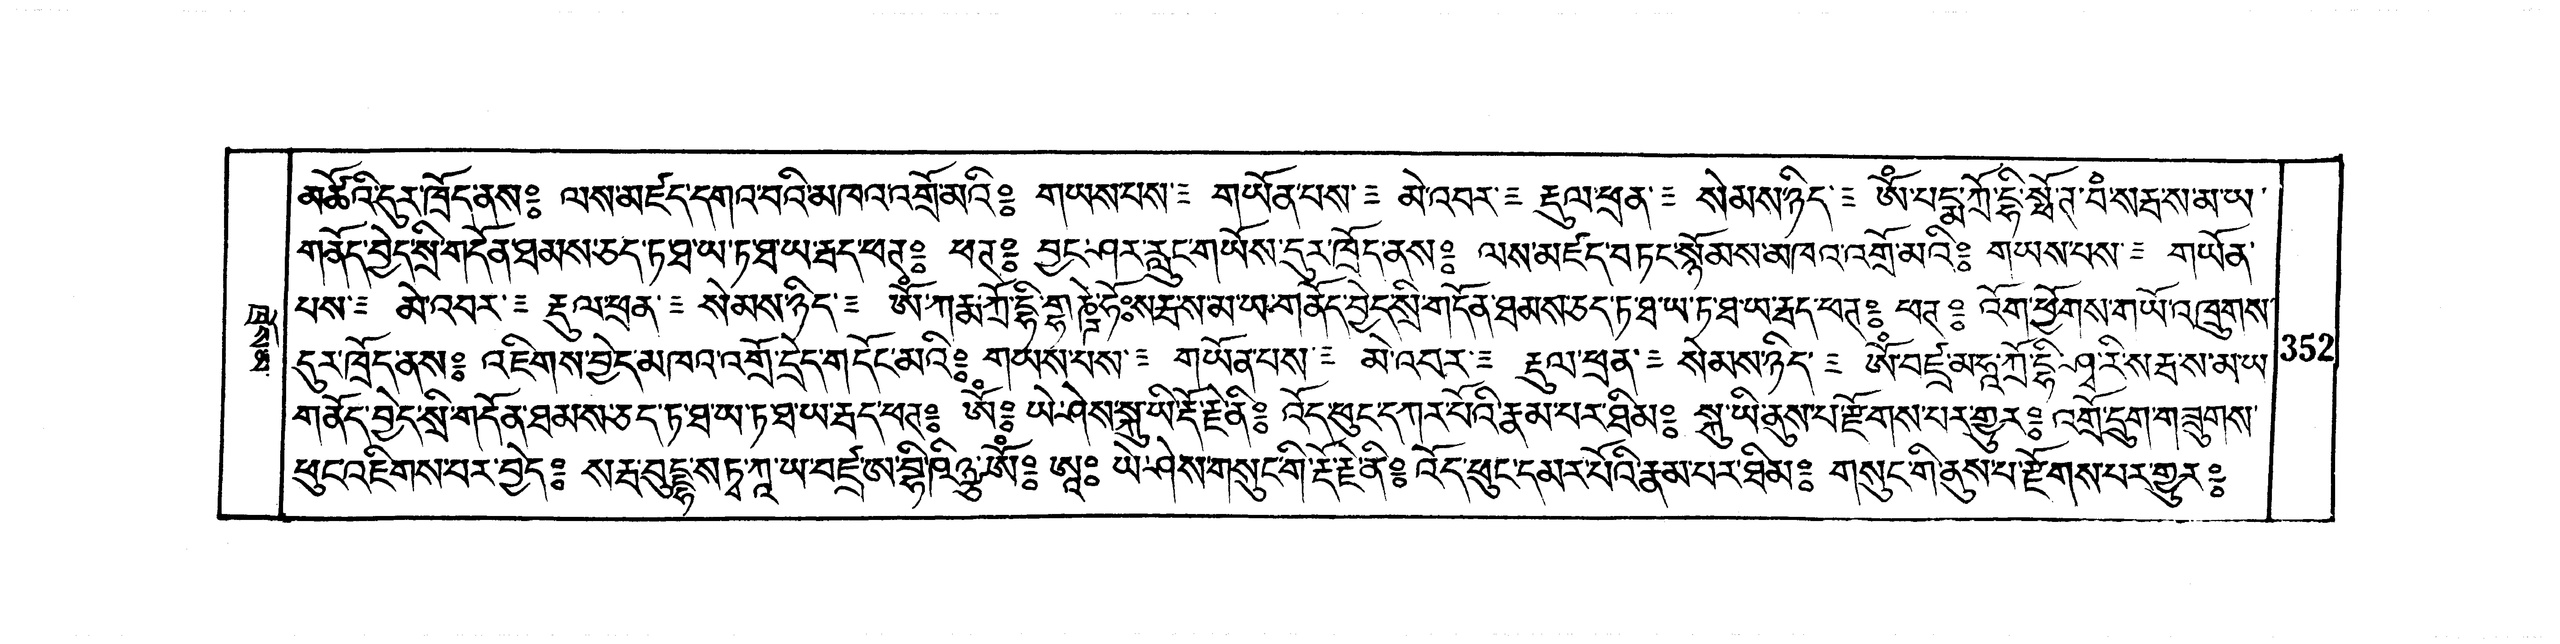 མཚོའི་དུར་ཁྲོད་ནས༔ ལས་མཛད་དགའ་བའི་མཁའ་འགྲོ་མའི༔ གཡས་པས་ ༔ གཡོན་པས་ ༔ མེ་འབར་ ༔ རྡུལ་ཕྲན་ ༔ སེམས་ཉིད་ ༔ ཨོཾ་པདྨ་ཀྲོ་དྷི་སྥོ་ཊ་བཾ་སརྦ་ས་མ་ཡ་
གནོད་བྱེད་སྲི་གདོན་ཐམས་ཅད་ཏ་ཐ་ཡ་ཏ་ཐ་ཡ་རྦད་ཕཊ༔ ཕཊ༔ བྱང་ཤར་རླུང་གཡོས་དུར་ཁྲོད་ནས༔ ལས་མཛད་བཏང་སྙོམས་མཁའ་འགྲོ་མའི༔ གཡས་པས་ ༔ གཡོན་
པས་ ༔ མེ་འབར་ ༔ རྡུལ་ཕྲན་ ༔ སེམས་ཉིད་ ༔ ཨོཾ་ཀརྨ་ཀྲོ་དྷི་ ཧོཿསརྦ་ས་མ་ཡ་གནོད་བྱེད་སྲི་གདོན་ཐམས་ཅད་ཏ་ཐ་ཡ་ཏ་ཐ་ཡ་རྦད་ཕཊ༔ ཕཊ༔ འོག་ཕྱོགས་གཡོ་འཁྲུགས་
དུར་ཁྲོད་ནས༔ འཇིགས་བྱེད་མཁའ་འགྲོ་དྲེད་གདོང་མའི༔ གཡས་པས་ ༔ གཡོན་པས་ ༔ མེ་འབར་ ༔ རྡུལ་ཕྲན་ ༔ སེམས་ཉིད་ ༔ ཨོཾ་བཛྲ་མཧཱ་ཀྲོ་དྷི་ཤྭ་རི་སརྦ་ས་མ་ཡ་
གནོད་བྱེད་སྲི་གདོན་ཐམས་ཅད་ཏ་ཐ་ཡ་ཏ་ཐ་ཡ་རྦད་ཕཊ༔ ཨོཾ༔ ཡེ་ཤེས་སྐུ་ཡི་རྡོ་རྗེ་ནི༔ འོད་ཕུང་དཀར་པོའི་རྣམ་པར་ཐིམ༔ སྐུ་ཡི་ནུས་པ་རྫོགས་པར་གྱུར༔ འགྲོ་དྲུག་གཟུགས་
ཕུང་འཇིགས་བར་བྱེད༔ སརྦ་བུདྡྷ་སཏྭ་ཀཱ་ཡ་བཛྲ་ཨ་བྷི་ཥིཉྩ་ཨོཾ༔ ཨཱ༔ ཡེ་ཤེས་གསུང་གི་རྡོ་རྗེ་ནི༔ འོད་ཕུང་དམར་པོའི་རྣམ་པར་ཐིམ༔ གསུང་གི་ནུས་པ་རྫོགས་པར་གྱུར༔
352